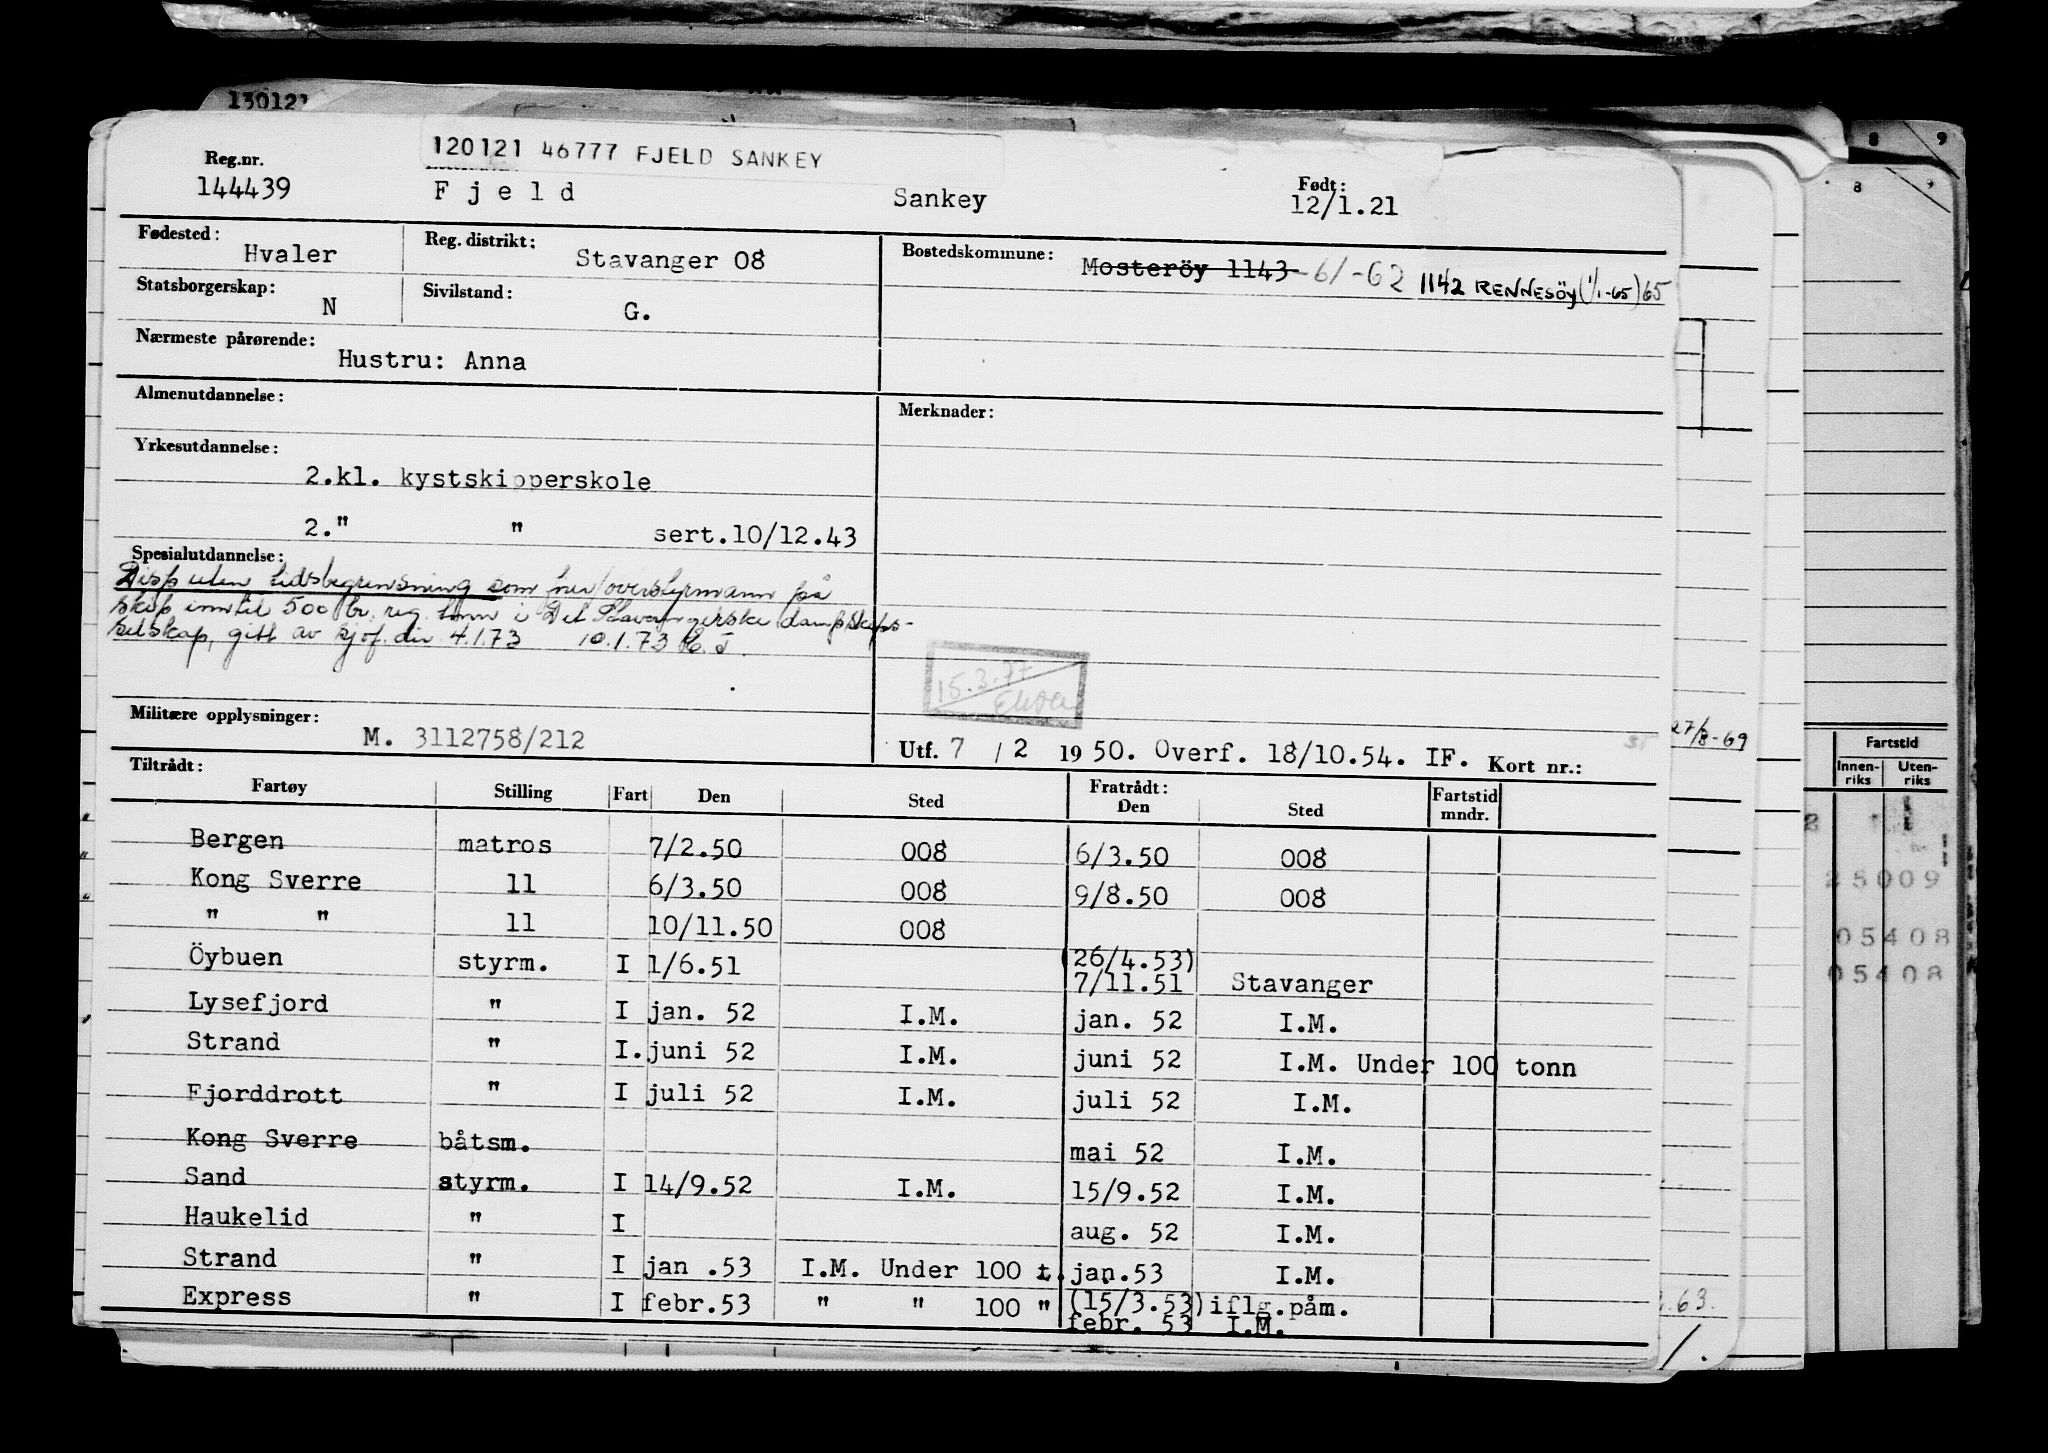 130121
8 9
8
120121 46777 FJELD SANKEY
Reg.nr.
144439 Fjeld Sankey Født: 12/1.21
Fødested: Hvaler Reg. distrikt: Stavanger 08 Bostedskommune: Mosteröy 1143 -6/-62 1142 RENNESÖY (1/1-65) 65
Statsborgerskap: N Sivilstand: G.
Nærmeste pårørende: Hustru: Anna
Almenutdannelse: Merknader:
Yrkesutdannelse:
2.kl. kystskipperskole
2." " sert.10/12.43
Spesialutdannelse:
Disp uten tidsbegrensning som overstyrmann på
skip inntil 500 br. reg. tonn i Det Stavangerske dampskips-
selskap, gitt av sjöf. dir 4.1.73 10.1.73
15.3.77
Militære opplysninger: M. 3112758/212
Utf. 7 / 2 1950. Overf. 18/10.54. IF. Kort nr.:
27/8-69
Tiltrådt: Fratrådt:
Fartøy Stilling Fart Den Sted Den Sted Fartstid mndr.
Bergen matros 7/2.50 008 6/3.50 008
Kong Sverre 11 6/3.50 008 9/8.50 008
" " 11 10/11.50 008
Öybuen styrm. I 1/6.51 (26/4.53)
7/11.51 Stavanger
Lysefjord " I jan. 52 I.M. jan. 52 I.M.
Strand " I. juni 52 I.M. juni 52 I.M. Under 100 tonn
Fjorddrott " I juli 52 I.M. juli 52 I.M.
Kong Sverre båtsm. mai 52 I.M.
Sand styrm. I 14/9.52 I.M. 15/9.52 I.M.
Haukelid " I aug. 52 I.M.
Strand " I jan .53 I.M. Under 100 t. jan.53 I.M.
Express " I febr.53 " " 100 " (15/3.53) iflg.påm.
febr. 53 I.M.
Fartstid
Innen-riks Uten-riks
25009
05408
05408
.63.